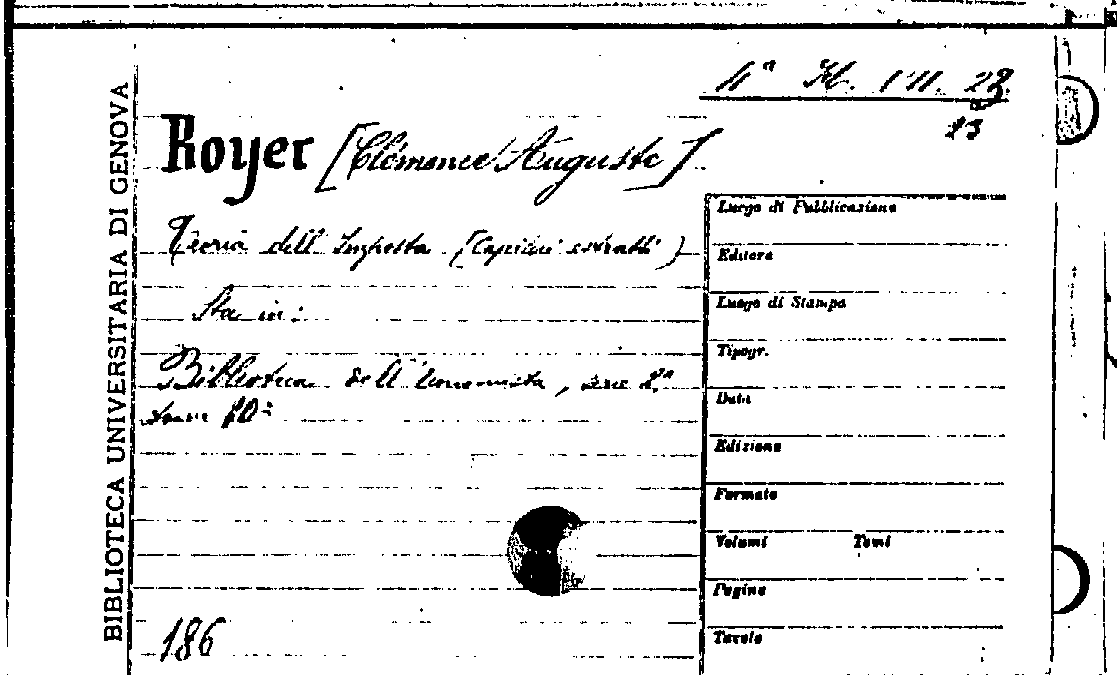 BIBLIOTECA UNIVERSITARIA DI GENOVA
4ª
Royer [Clémence Auguste]
Teoria dell'Imposta (Capitoli estratti)
Sta in:
Biblioteca dell'Economista, serie 2ª
10º
186
Luogo di Pubblicazione
Editore
Luogo di Stampa
Tipogr.
Data
Edizione
Formato
Volumi Tomi
Pagine
Tavole